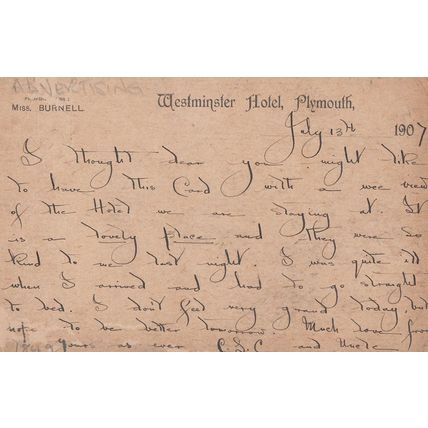 ADVERTISING
Miss. BURNELL
Westminster Hotel, Plymouth,
July 13th 1907
I thought dear you might like
to have this Card with a wee view
of the Hotel we are staying at. It
is a lovely place and they were so
kind to me last night. I was quite ill
when I arrived and had to go straight
to bed. I don't feel very grand today, but
hope to be better tomorrow. Much love from
yours as ever C.S.C and Uncle